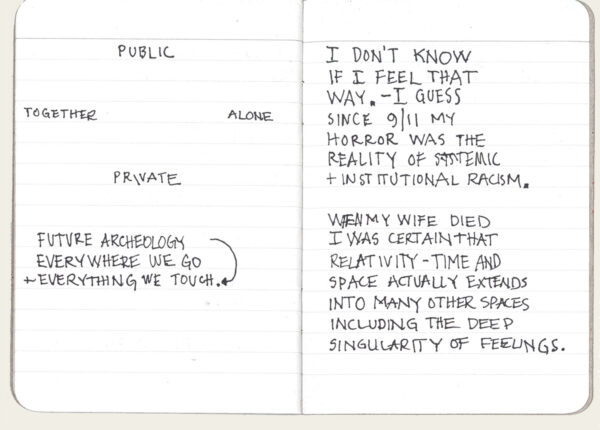 PUBLIC
TOGETHER ALONE
PRIVATE
FUTURE ARCHEOLOGY
EVERYWHERE WE GO
+ EVERYTHING WE TOUCH.
I DON'T KNOW
IF I FEEL THAT
WAY. - I GUESS
SINCE 9/11 MY
HORROR WAS THE
REALITY OF SYSTEMIC
+ INSTITUTIONAL RACISM.
WHEN MY WIFE DIED
I WAS CERTAIN THAT
RELATIVITY - TIME AND
SPACE ACTUALLY EXTENDS
INTO MANY OTHER SPACES
INCLUDING THE DEEP
SINGULARITY OF FEELINGS.